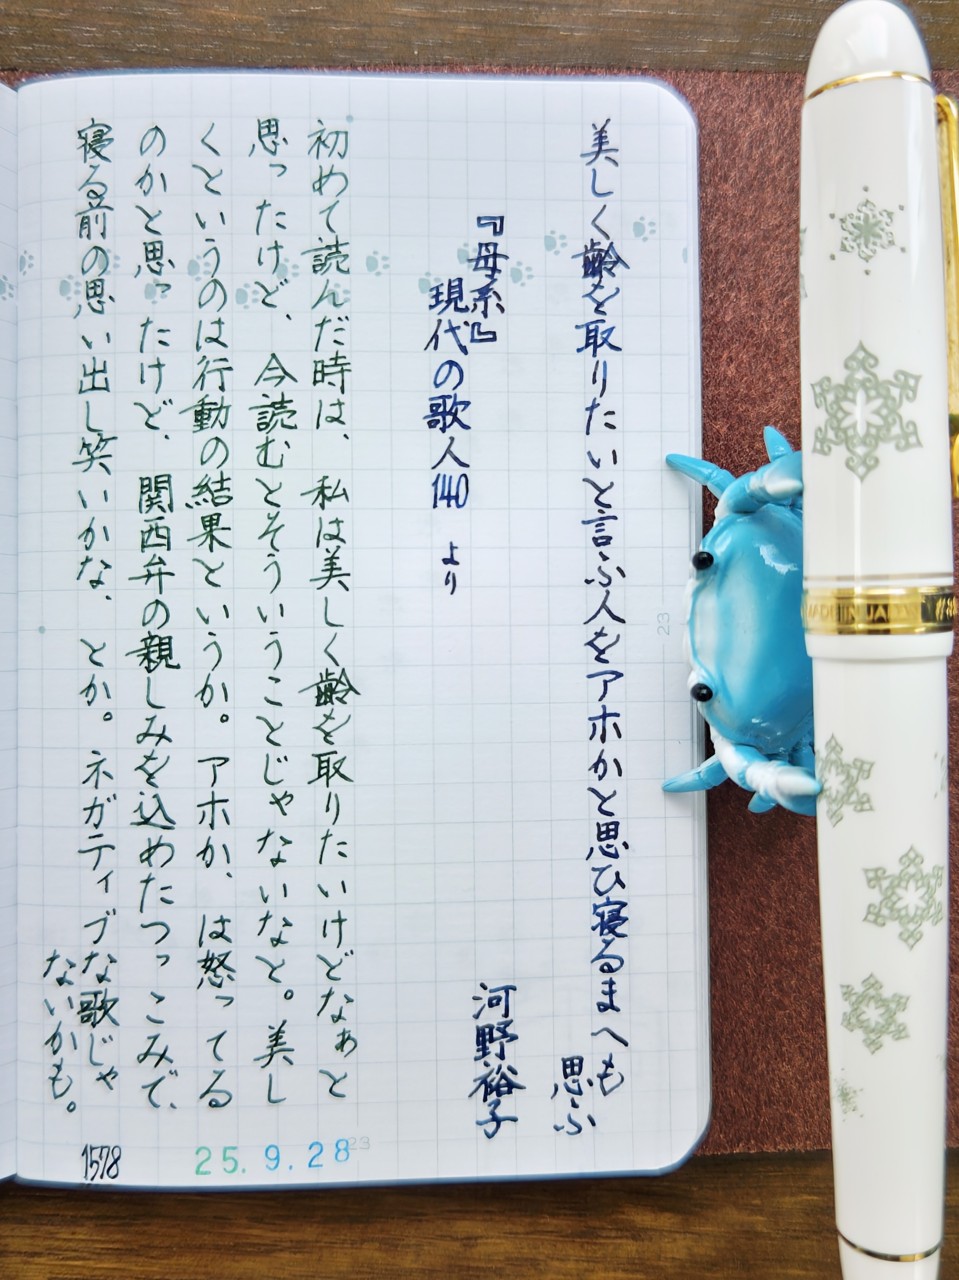 美しく齢を取りたいと言ふ人をアホかと思ひ寝るまへも
思ふ
『母系』
河野裕子
現代の歌人140 より
初めて読んだ時は、私は美しく齢を取りたいけどなぁと
思ったけど、今読むとそういうことじゃないなと。美し
くというのは行動の結果というか。アホか、は怒ってる
のかと思ったけど、関西弁の親しみを込めたつっこみで、
寝る前の思い出し笑いかな、とか。ネガティブな歌じゃ
ないかも。
25.9.28
1578
23
23